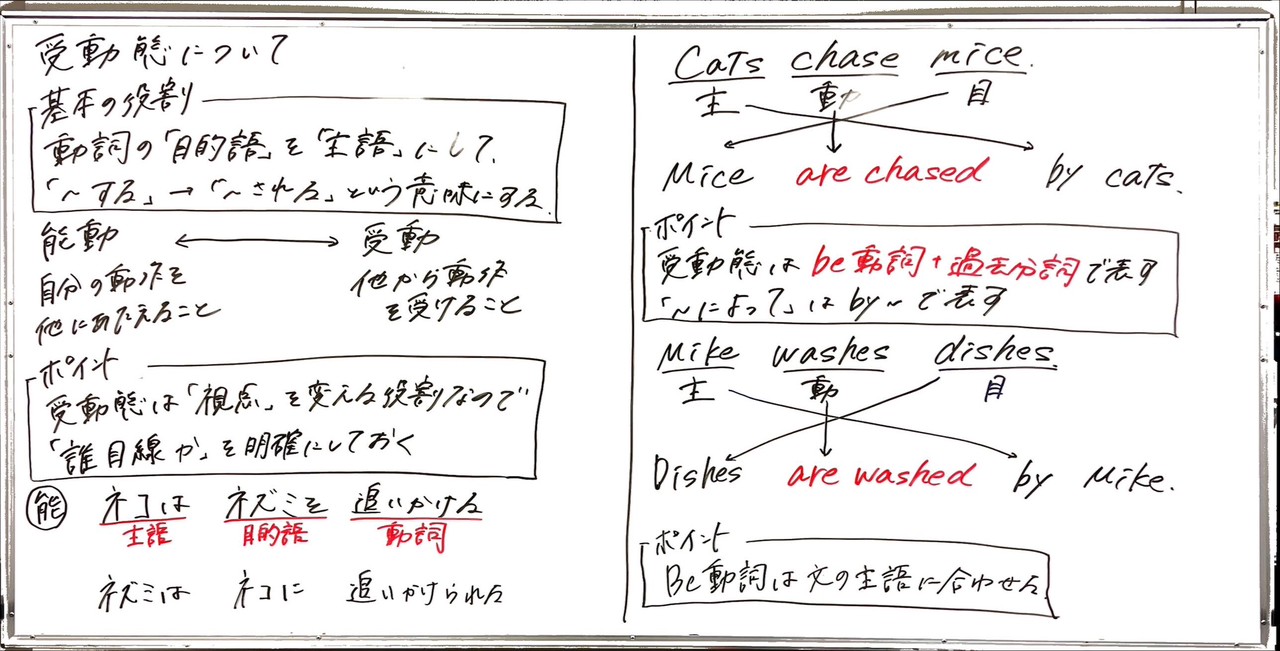 受動態について
基本の役割
動詞の「目的語」を「主語」にして、
「～する」→「～される」という意味にする
能動 ⟷ 受動
自分の動作を
他にあたえること
他から動作
を受けること
ポイント
受動態は「視点」を変える役割なので
「誰目線か」を明確にしておく
能 ネコは ネズミを 追いかける
主語 目的語 動詞
ネズミは ネコに 追いかけられる
Cats chase mice.
主 動 目
Mice are chased by cats.
ポイント
受動態は be動詞+過去分詞で表す
「～によって」は by ~ で表す
Mike washes dishes.
主 動 目
Dishes are washed by Mike.
ポイント
Be動詞は文の主語に合わせる